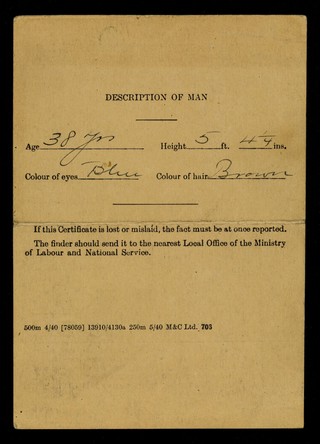 DESCRIPTION OF MAN
Age 38 yrs Height 5 ft. ins.
Colour of eyes Blue Colour of hair Brown
If this Certificate is lost or mislaid, the fact must be at once reported.
The finder should send it to the nearest Local Office of the Ministry
of Labour and National Service.
500m 4/40 [78059] 13910/4130a 250m 5/40 M&C Ltd. 705